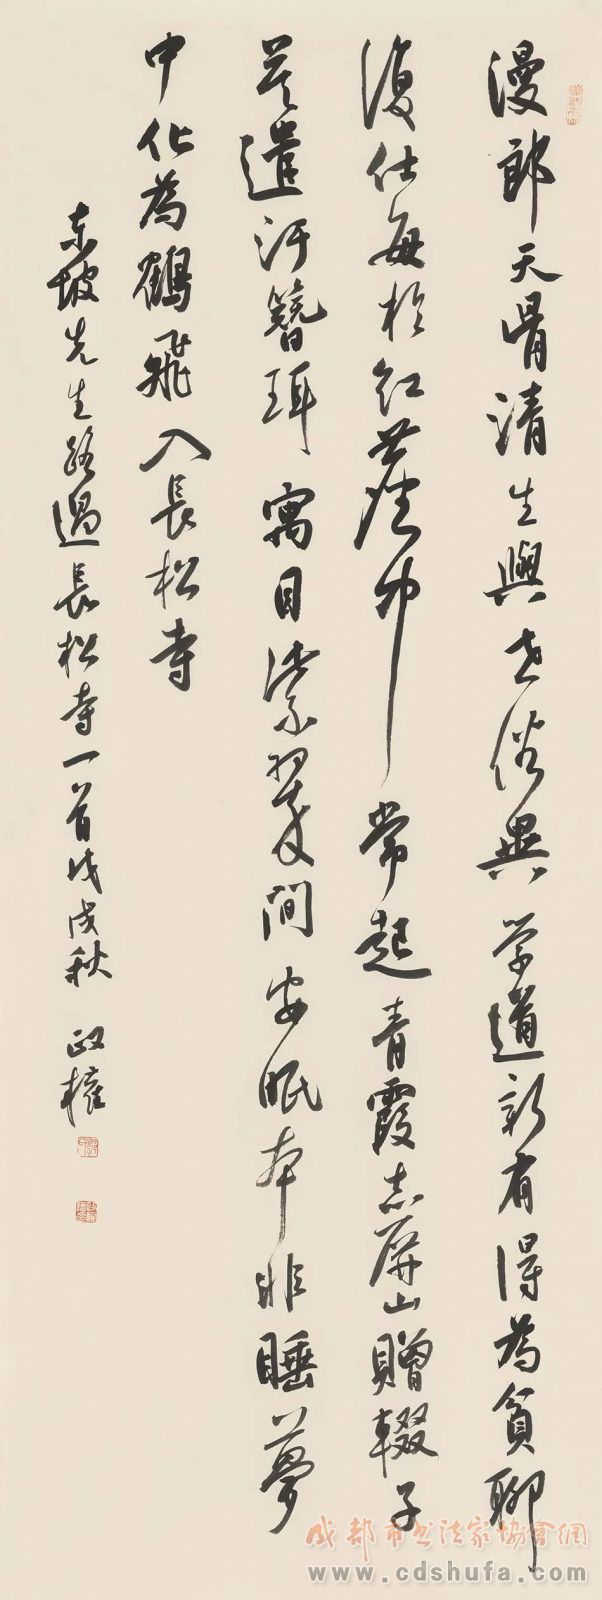 漫郎天骨清生與世俗異学道新有得為貧聊
復仕每於紅塵中常起青霞志屏山贈輟子
莫遣汙簪珥寓目紫翠間安眠本非睡夢
中化為鶴飛入長松寺
东坡先生路過長松寺一首戊戌秋 政權
成都市书法家協會網
www.cdshufa.com